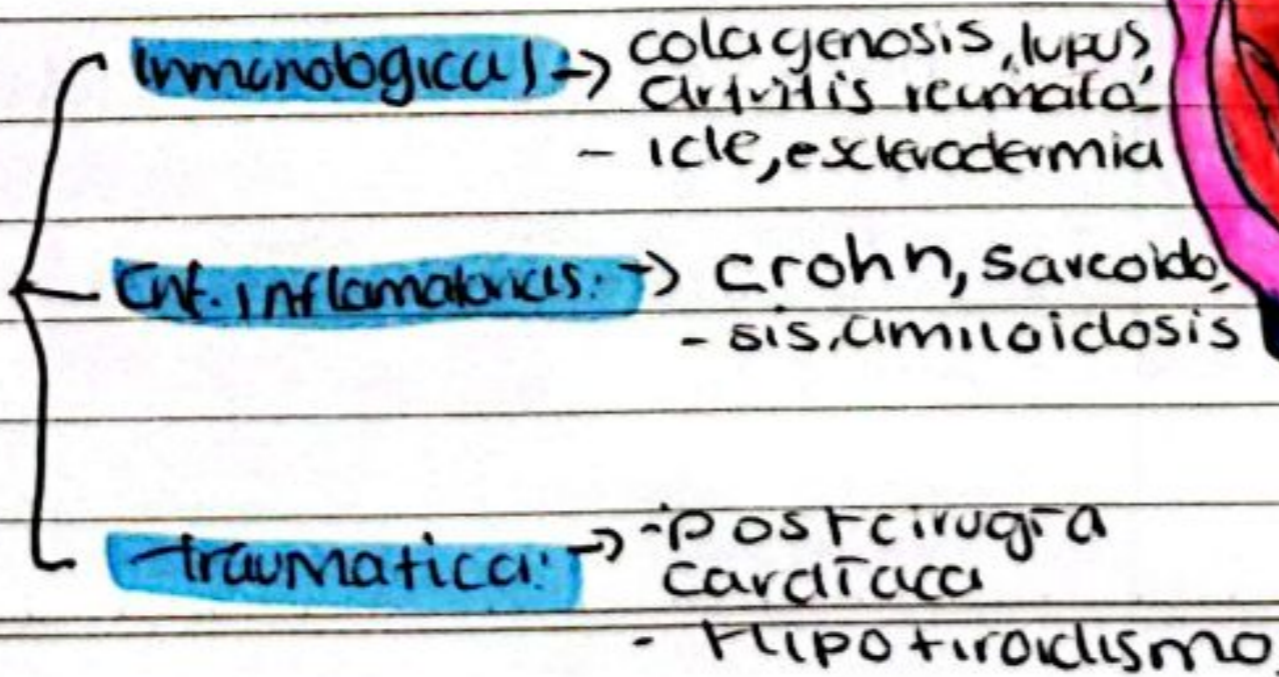 Inmunologica! → colagenosis, lupus,
artritis reumato-
- ide, esclerodermia
Enf. inflamatorias: → crohn, sarcoido,
- sis, amiloidosis
traumatica: → - Postcirugía
cardíaca
- Hipotiroidismo,